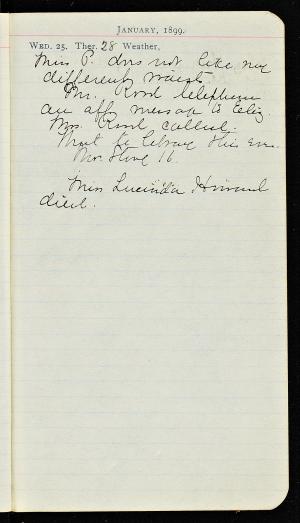 JANUARY, 1899.
WED. 25. Ther. 28 Weather,
Miss P. does not like my
different waist.
Mr. Rood telephone
an aff message to Eliz.
Mrs. Rood called.
Went to library this eve.
No. Stone 16.
Miss Lucinda Howard
died.